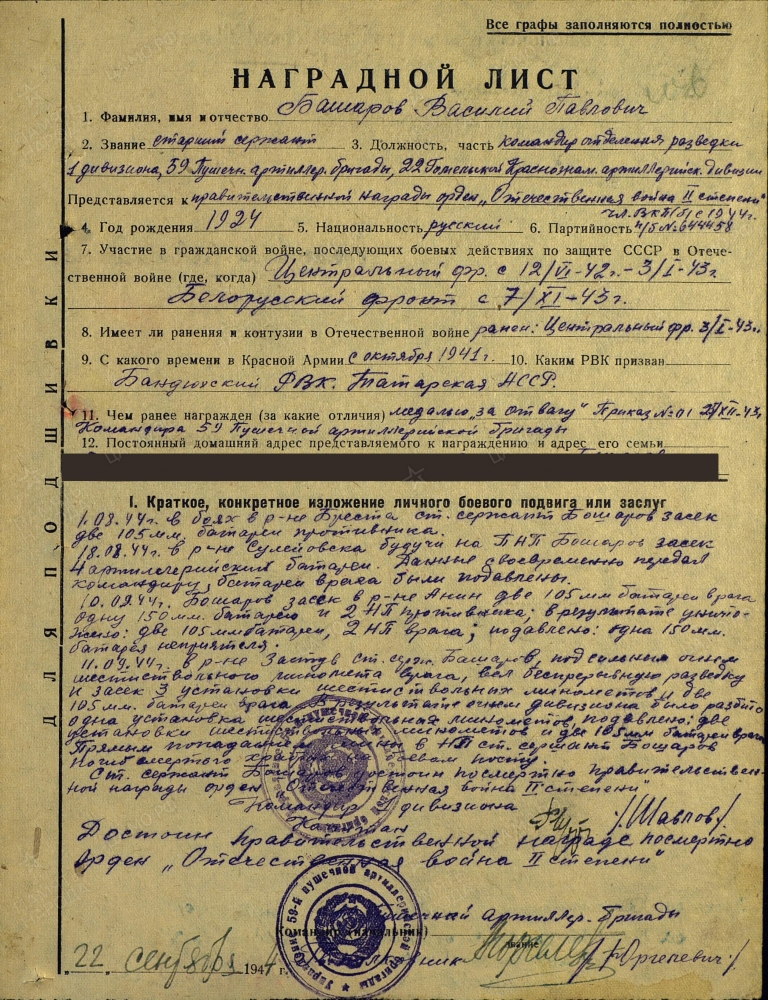 Все графы заполняются полностью
НАГРАДНОЙ ЛИСТ
1. Фамилия, имя и отчество Башаров Василий Павлович
2. Звание старший сержант 3. Должность, часть командир отделения разведки
1 дивизиона, 59 Пушечн. артиллер. бригады, 22 Гомельской Краснознам. артиллерийск. дивизии
Представляется к правительственной награды орден „Отечественная война II степени"
чл. ВКП(б) с 1944г.
4. Год рождения 1924 5. Национальность русский 6. Партийность п/б № 644458
7. Участие в гражданской войне, последующих боевых действиях по защите СССР в Отече-
ственной войне (где, когда) Центральный фр. с 12/VI-42г.-3/I-43г.
Белорусский фронт с 7/XI-43г.
8. Имеет ли ранения и контузии в Отечественной войне ранен: Центральный фр. 3/I-43г.
9. С какого времени в Красной Армии с октября 1941г. 10. Каким РВК призван
Бандюхский РВК. Татарская АССР.
11. Чем ранее награжден (за какие отличия) медалью „за отвагу" Приказ № 01 XII-43г.
Командира 59 Пушечной артиллерийской бригады
12. Постоянный домашний адрес представляемого к награждению и адрес его семьи
ДЛЯ ПОДШИВКИ
I. Краткое, конкретное изложение личного боевого подвига или заслуг
1.08.44г. в боях в р-не Бреста ст. сержант Бошаров засек
две 105мм. батареи противника.
18.08.44г. в р-не Сулейовска будучи на ПНП Бошаров засек
4 артиллерийских батареи. Данные своевременно передал
командиру, батареи врага были подавлены.
10.09.44г. Бошаров засек в р-не Анин две 105 мм батареи врага
одну 150 мм. батарею и 2 НП противника; в результате уничто-
жено: две 105 мм батареи, 2 НП врага; подавлено: одна 150 мм.
батарея неприятеля.
11.09.44г. в р-не Заступ ст. серж. Башаров под сильным огнем
шестиствольного миномета врага, вел беспрерывную разведку
и засек 3 установки шестиствольных минометов и две
105 мм. батареи врага. В результате огнем дивизиона было разбито
одна установка шестиствольная минометов, подавлено: две
установки шестиствольных минометов и две 105 мм батареи врага
Прямым попаданием мины в НП ст. сержант Бошаров
погиб смертью храбрых на боевом посту.
Ст. сержант Бошаров достоин посмертно правительствен-
ной награды орден „Отечественная война II степени".
Командир 1 дивизиона
Капитан /Шавлов/
Достоин правительственной награде посмертно
орден „Отечественная война II степени"
Пушечной артиллер. бригады
Командир (начальник)
звание
Полковник
„22" сентября 1944 г.
Управление 59-й пушечной артиллерийской бригады